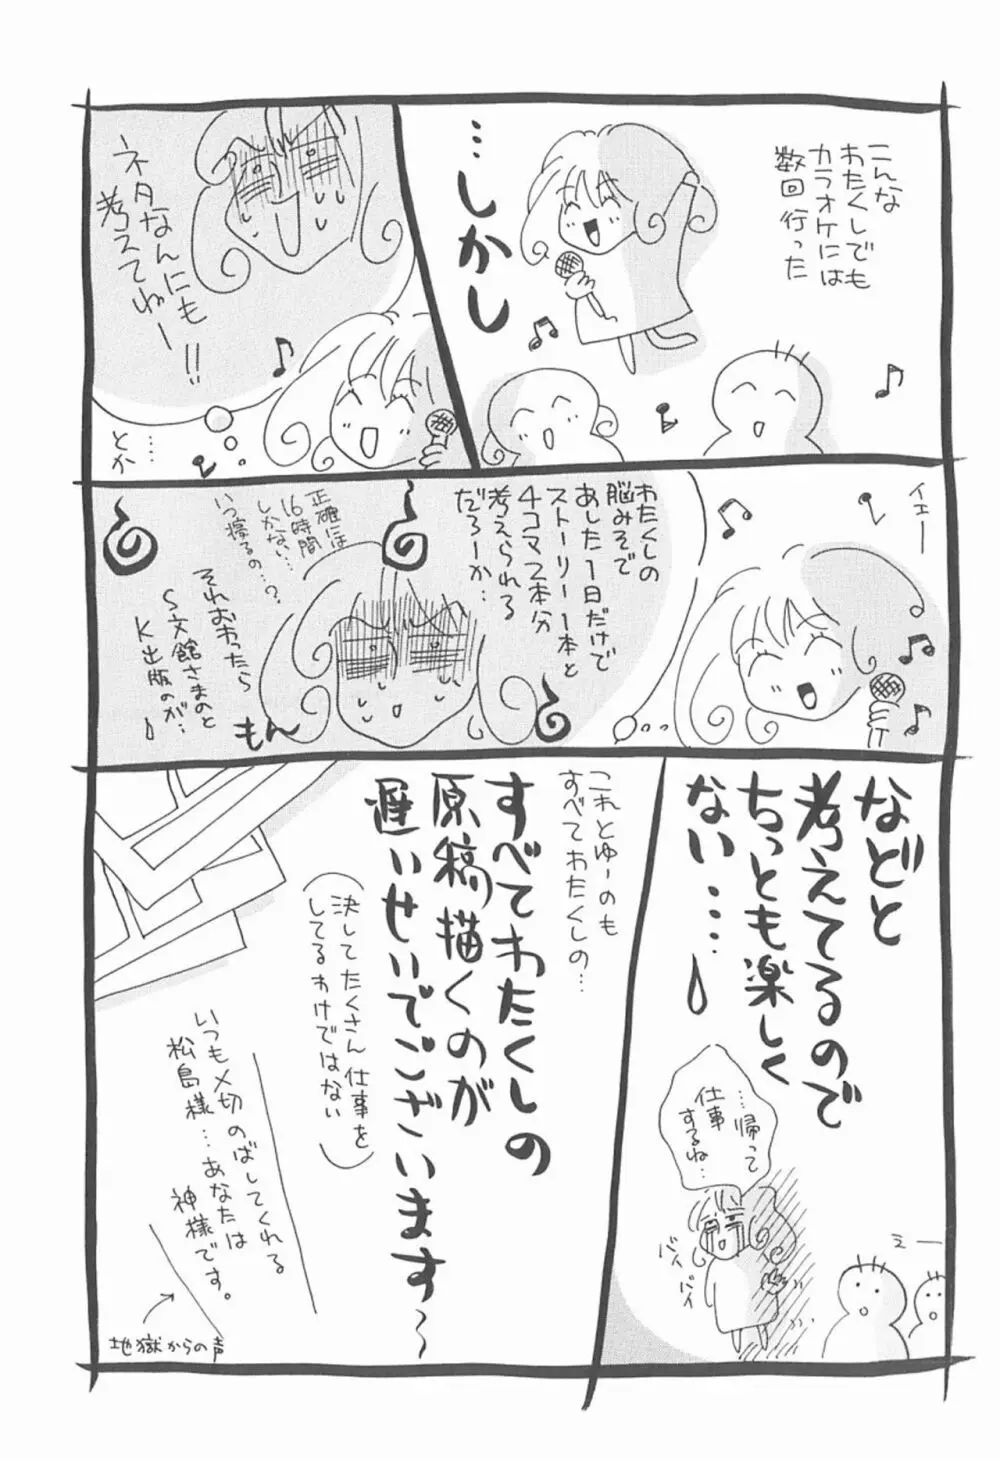 こんな
わたくしでも
カラオケには
数回行った
…しかし
ネタなんにも
考えてねー!!
…
とか
イェー
わたくしの
脳みそで
あした1日だけで
ストーリー1本と
4コマ2本分
考えられる
だろーか…
正確には
16時間
しかない…
いつ寝るの…?
それおわったら
S文館さまのと
K出版のが…
もん
などと
考えてるので
ちっとも楽しく
ない…
…帰って
仕事
するね…
バイ
バイ
えー
これとゆーのも
すべてわたくしの…
すべてわたくしの
原稿描くのが
遅いせいでございます～
(決してたくさん仕事を
してるわけではない)
いつも〆切のばしてくれる
松島様…あなたは
神様です。
地獄からの声